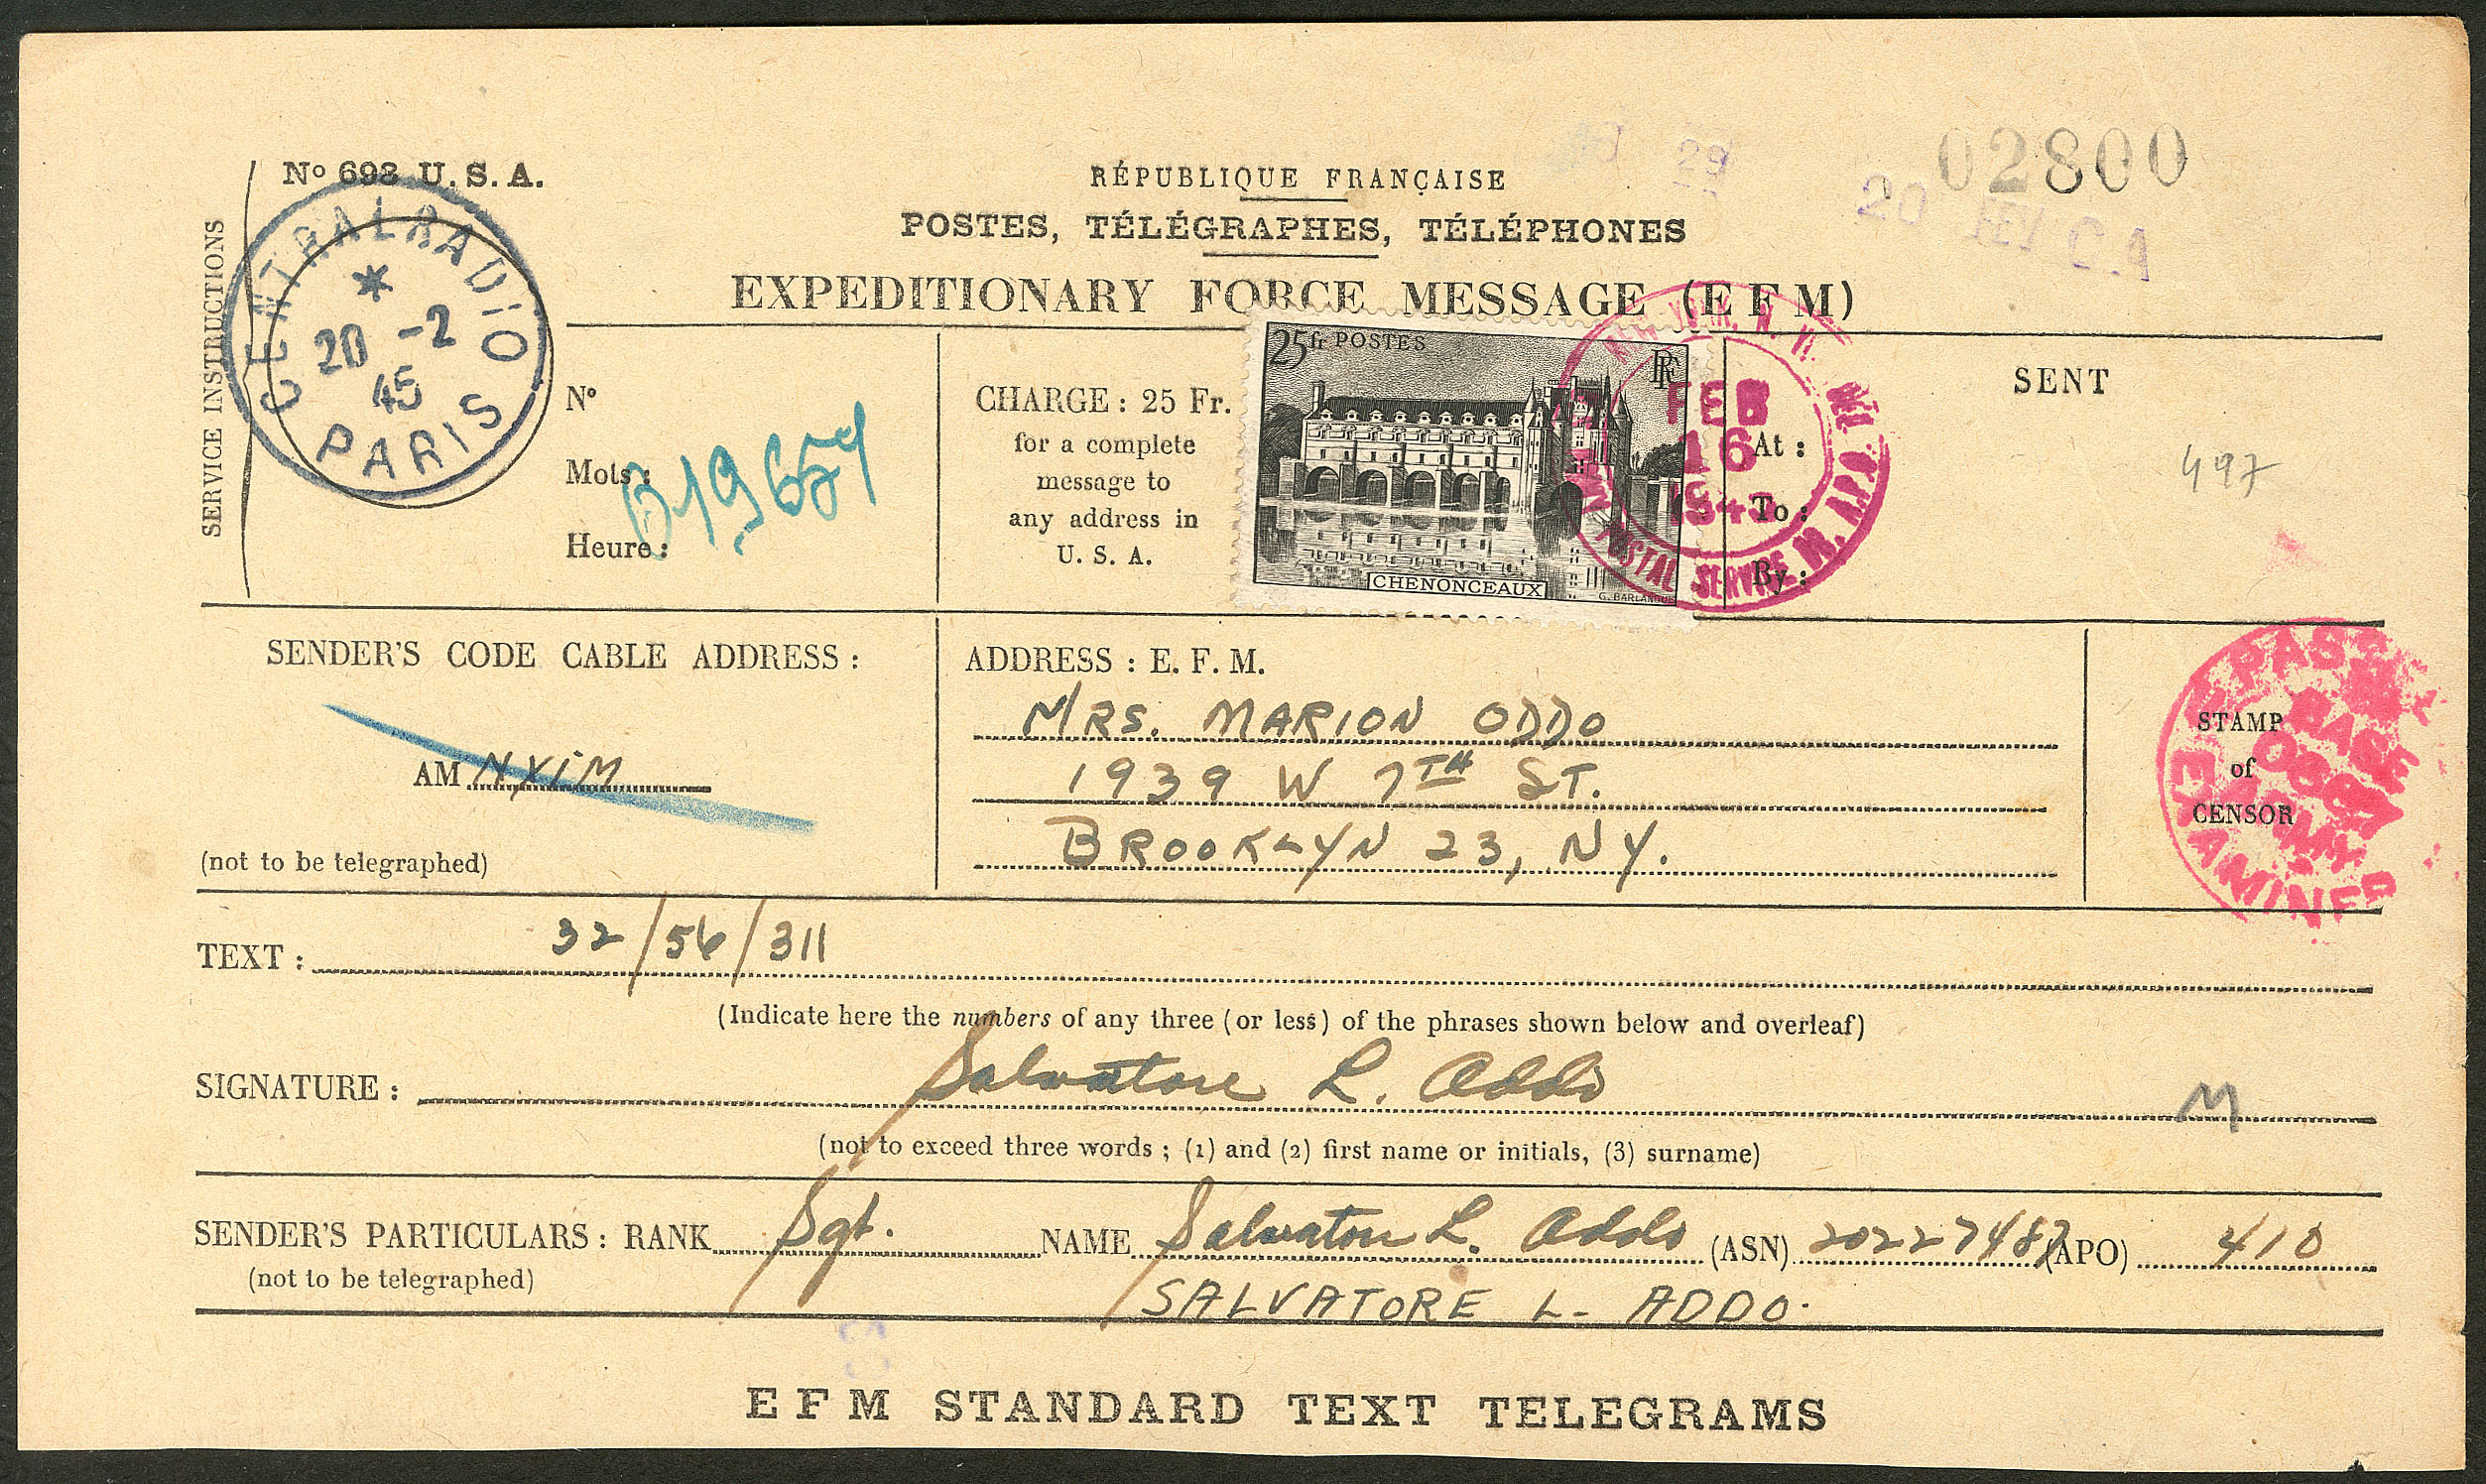 02800
29
20 FEV C.A
No 698 U.S.A.
RÉPUBLIQUE FRANÇAISE
POSTES, TÉLÉGRAPHES, TÉLÉPHONES
EXPEDITIONARY FORCE MESSAGE (EFM)
SERVICE INSTRUCTIONS
CENTRALRADIO
20 -2
45
PARIS
No
Mots :
Heure :
CHARGE : 25 Fr.
for a complete
message to
any address in
U. S. A.
25fr POSTES
RF
CHENONCEAUX
G. BARLANGUE
FEB
16
POSTAL SERVICE
SENT
At :
To :
By :
497
SENDER'S CODE CABLE ADDRESS :
AM NXIM
(not to be telegraphed)
ADDRESS : E. F. M.
MRS. MARION ODDO
1939 W 7TH ST.
BROOKLYN 23, NY.
STAMP
of
CENSOR
PASSED
BASE
ARMY
EXAMINER
TEXT : 32/56/311
(Indicate here the numbers of any three (or less) of the phrases shown below and overleaf)
SIGNATURE : Salvatore L. Oddo
M
(not to exceed three words ; (1) and (2) first name or initials, (3) surname)
SENDER'S PARTICULARS : RANK Sgt. NAME Salvatore L. Oddo (ASN) 20227487 (APO) 410
(not to be telegraphed)
SALVATORE L. ADDO.
EFM STANDARD TEXT TELEGRAMS